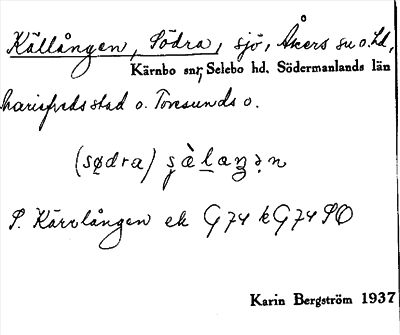 Källången, Södra, sjö, Åkers sn o. hd,
Kärnbo snr, Selebo hd. Södermanlands län
harisfreds stad o. Toresunds o.
(sødra)
S. Kärrlången ek G74 k G74 SO
Karin Bergström 1937